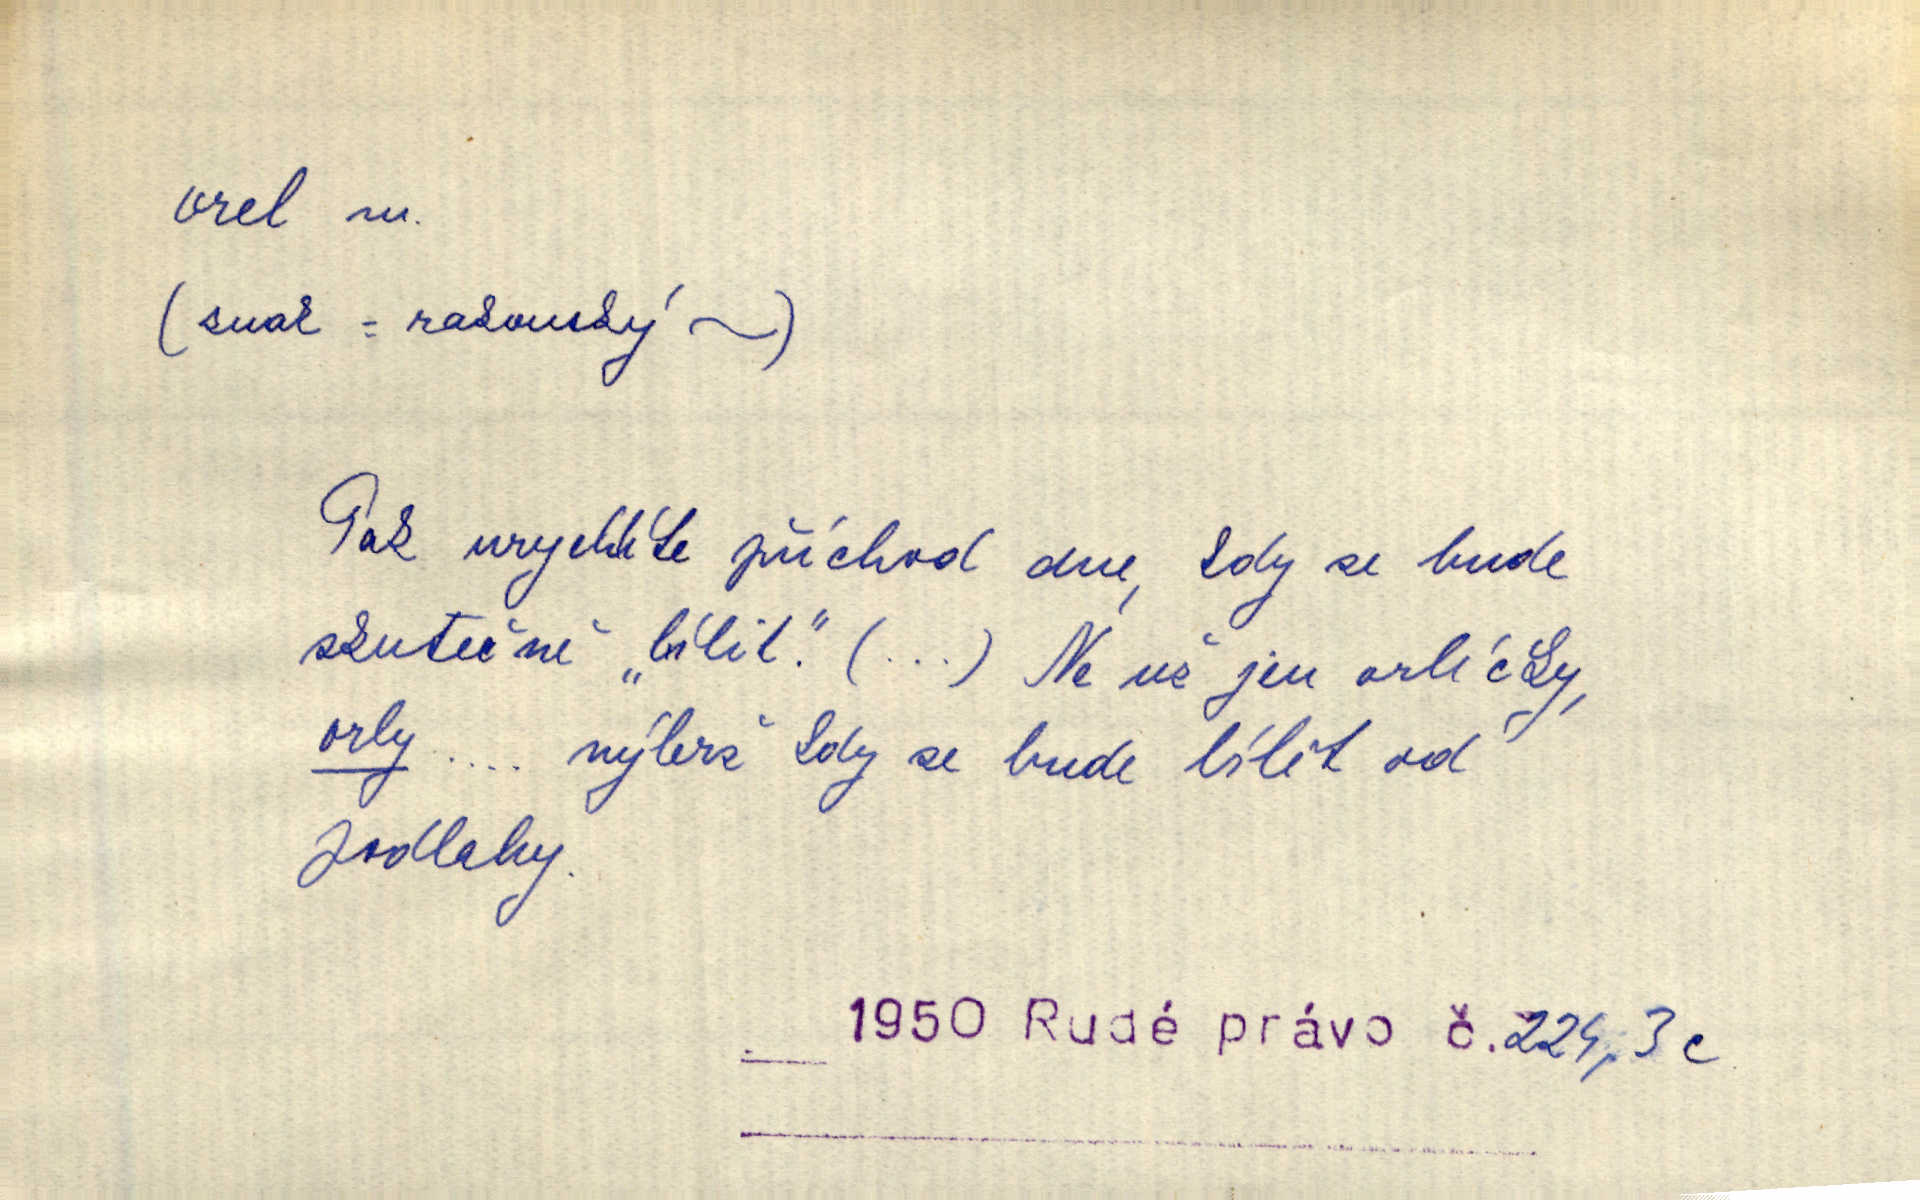 orel m.
(znak = rakouský ~)
Tak urychlíte příchod dne, kdy se bude
skutečně „bílit.“ (...) Ne už jen orlíčky,
orly .... nýbrž kdy se bude bílit od
podlahy.
1950 Rudé právo č. 224, 3 c